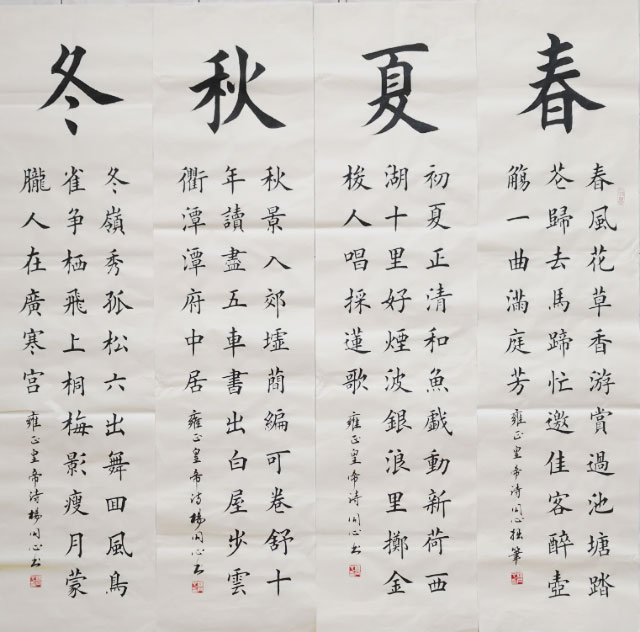 春
春風花草香游賞過池塘踏
芲歸去馬蹄忙邀佳客醉壺
觴一曲滿庭芳
雍正皇帝诗同心拙筆
夏
初夏正清和魚戲動新荷西
湖十里好煙波銀浪里擲金
梭人唱採蓮歌
雍正皇帝诗同心书
秋
秋景入郊墟簡編可卷舒十
年讀盡五車書出白屋步雲
衢潭潭府中居
雍正皇帝诗楊同心书
冬
冬嶺秀孤松六出舞回風鳥
雀争栖飛上桐梅影瘦月蒙
朧人在廣寒宫
雍正皇帝诗楊同心书